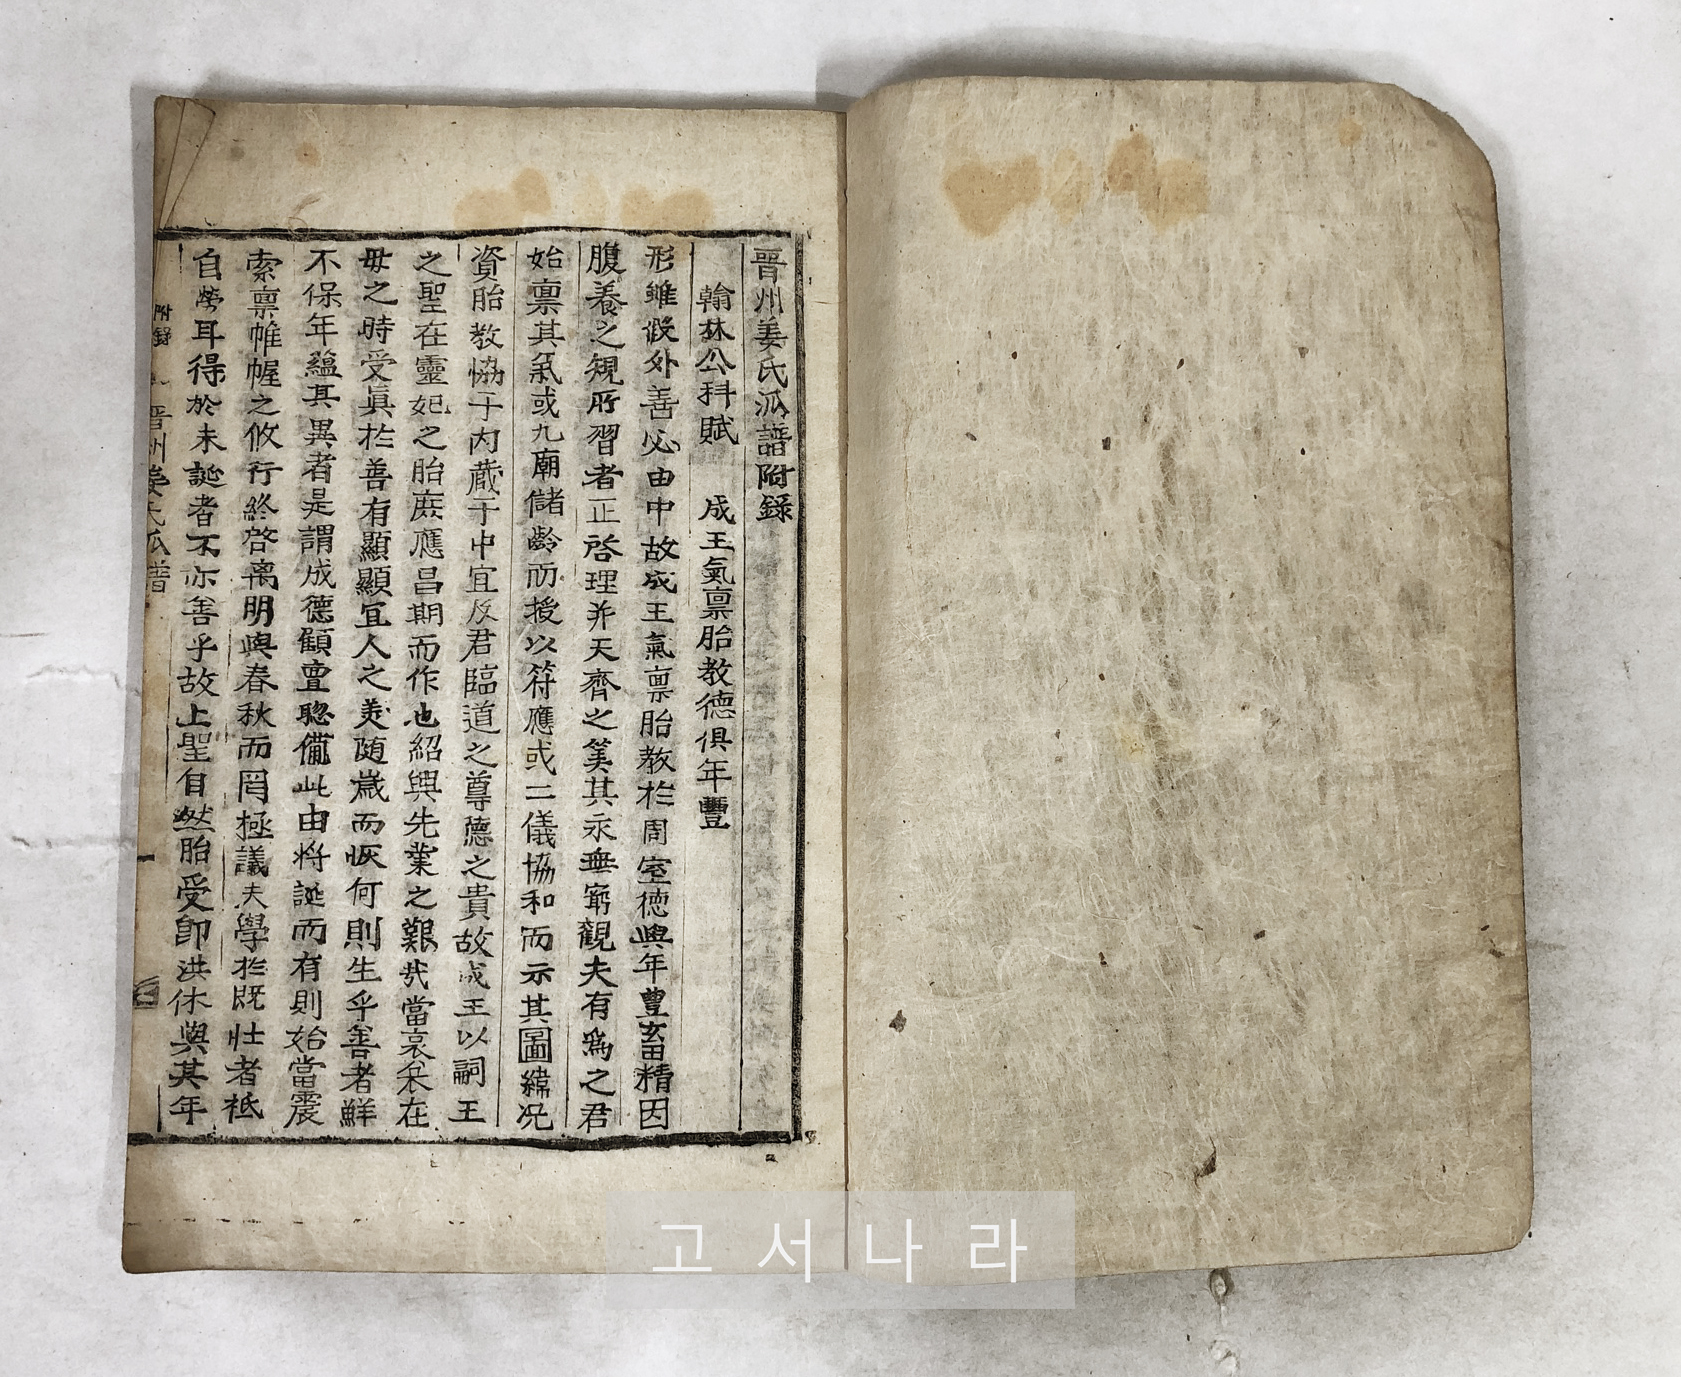 晋州姜氏派譜附錄
翰林公科賦 成王氣禀胎教德俱年豐
形雖假外善必由中故成王氣禀胎教於周室德與年豊畜精因
腹養之規所習者正啓理并天齊之筭其永無窮觀夫有爲之君
始禀其氣或九廟儲齡而授以符應或二儀協和而示其圖緯况
資胎教協于内蔵于中宜反君臨道之尊德之貴故成王以嗣王
之聖在靈妃之胎庶應昌期而作也紹興先業之艱哉當衷呆在
母之時受眞於善有顯顯冝人之美随歲而恢何則生乎善者鮮
不保年蘊其異者是謂成德顧亶聡儱此由將誕而有則始當震
索禀帷幄之攸行終啓离明與春秋而罔極議夫學於既壮者祗
自勞耳得於未誕者不亦善乎故上聖自然胎受卽洪休與其年
附錄
晋州姜氏派譜
고서나라